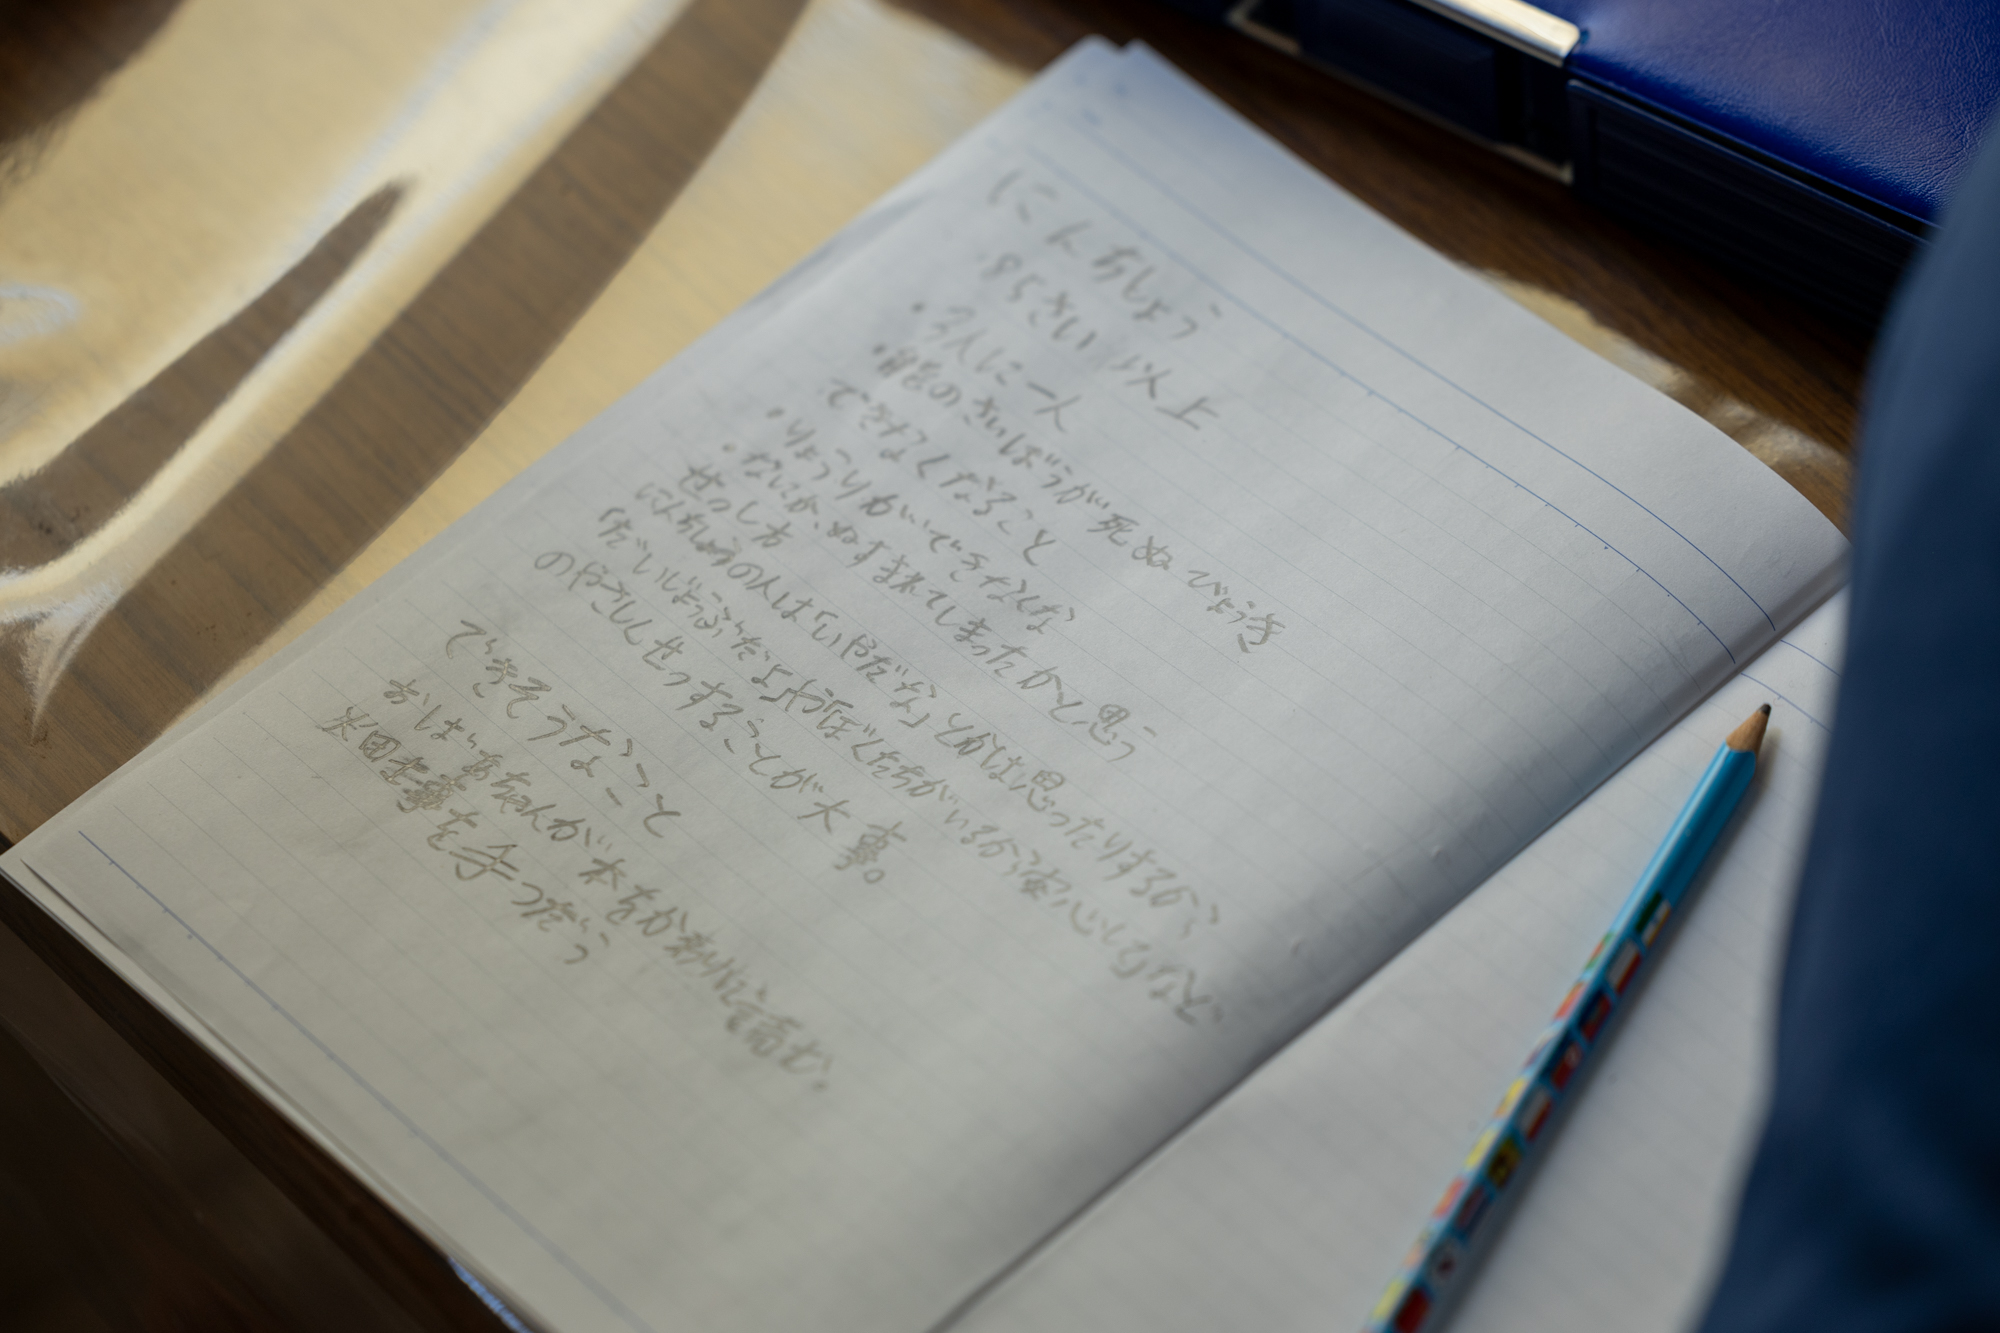 にんちしょう
・85さい以上
・2人に一人
・脳のさいぼうが死ぬびょうき
できなくなること
・りょうりができなくな
・なにかぬすまれてしまったかと思う
せっし方
にんちしょうの人は「いやだな」とかは思ったりするから
「だいじょうぶだよ」や「ぼくたちがいるから安心してなど
のやさしくせっすることが大事。
できそうなこと
おばあちゃんが本をか わりに読む。
水田仕事を手つだう